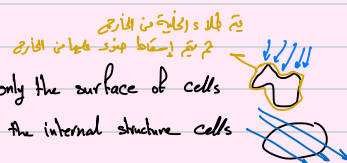 يتم طلاء الخلية من الخارج
ثم يتم إسقاط ضوء عليها من الخارج
only the surface of cells
the internal structure cells